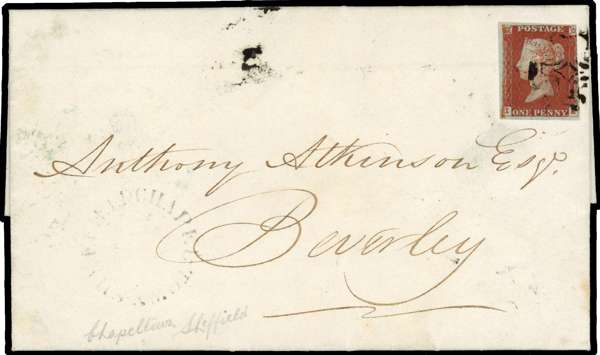 POSTAGE
ONE PENNY
Anthony Atkinson Esqr.
Beverley
Chapeltown Sheffield